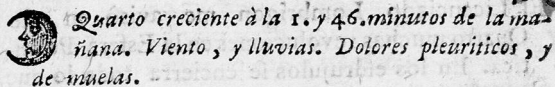 Quarto creciente à la 1. y 46. minutos de la ma-
ñana. Viento, y lluvias. Dolores pleuriticos, y
de muelas.